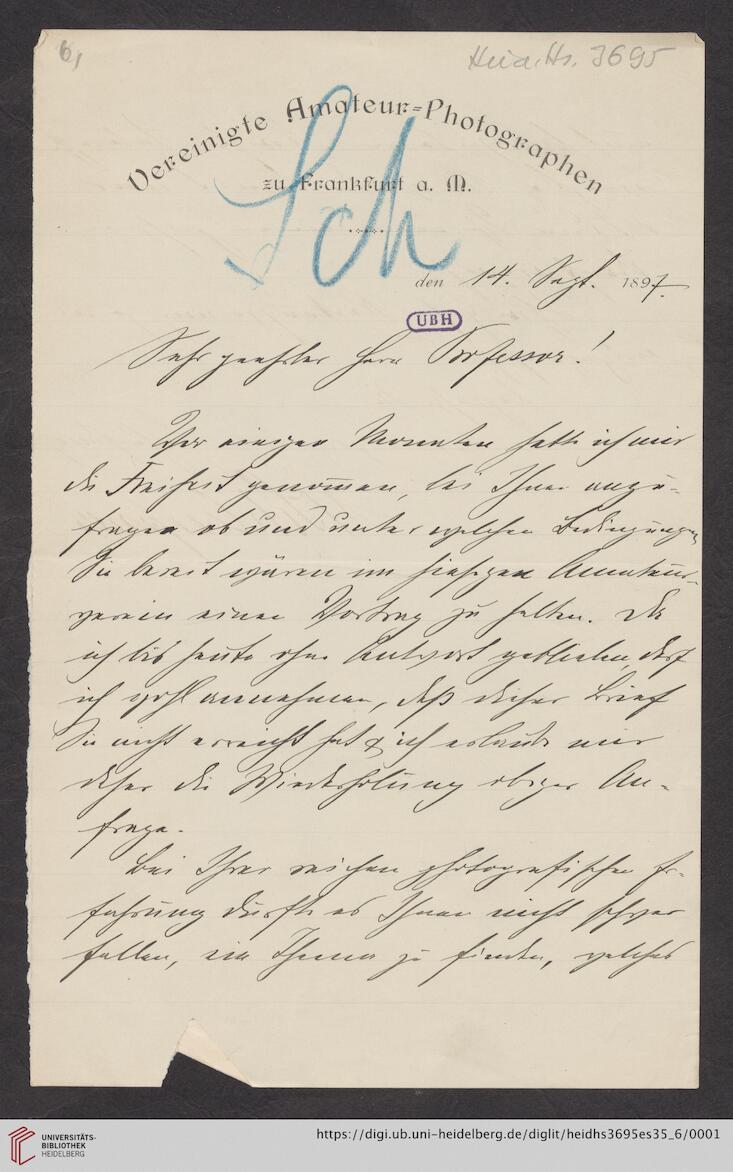 6,
Heid. Hs. 3695
Vereinigte Amateur-Photographen
zu Frankfurt a. M.
Sch
den 14. Sept. 1897.
UBH
Sehr geehrter Herr Professor!
Vor einigen Monaten hatte ich mir
die Freiheit genommen, bei Ihnen anzu-
fragen ob und unter welchen Bedingungen
Sie bereit wären im hiesigen Amateur-
verein einen Vortrag zu halten. Da
ich bis heute ohne Antwort geblieben, darf
ich wohl annehmen, daß dieser Brief
Sie nicht erreicht hat & ich erlaube mir
daher die Wiederholung obiger An-
frage.
Bei Ihrer reichen photografischen Er-
fahrung dürfte es Ihnen nicht schwer
fallen, ein Thema zu finden, welches
UNIVERSITÄTS-
BIBLIOTHEK
HEIDELBERG
https://digi.ub.uni-heidelberg.de/diglit/heidhs3695es35_6/0001